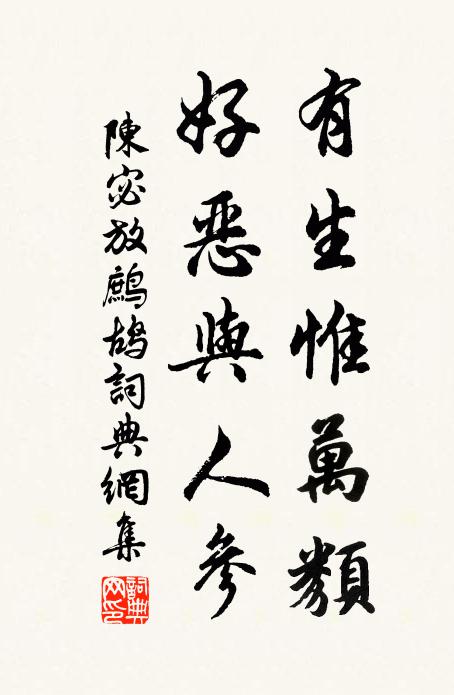 有生惟萬類
好惡與人參
陳宓放鷓鴣詞典網集
詞典網印